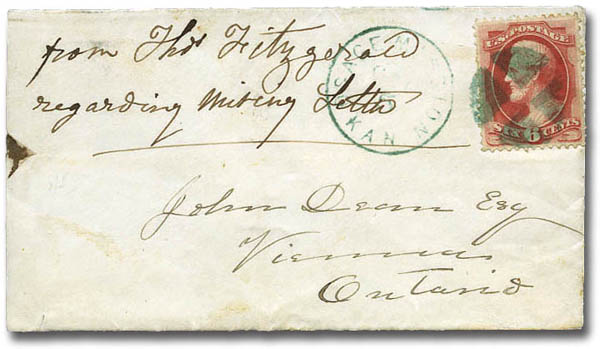 from Thos Fitzgerald
regarding Letter
John Dean Esq
Vienna
Ontario
U.S. POSTAGE
SIX 6 CENTS
KAN